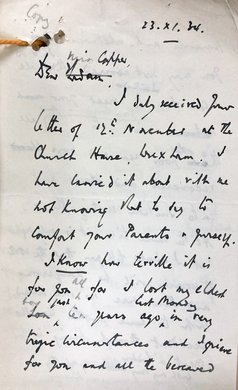 Copy
23.XI.34.
Miss Capper,
Dear Madam
I duly received your
letter of 12th November at the
Church House Wrexham. I
have carried it about with me
not knowing what to say to
comfort your Parents & yourself.
I know how terrible it is
for you all for I lost my eldest
boy just ten years ago last Monday in very
tragic circumstances and I grieve
for you and all the bereaved